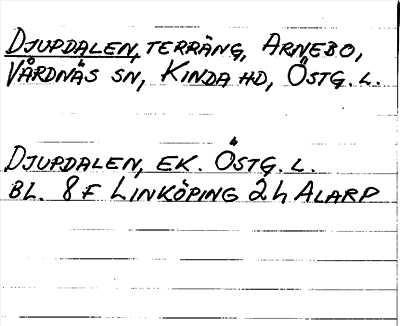 DJUPDALEN, TERRÄNG, ARNEBO,
VÅRDNÄS SN, KINDA HD, ÖSTG. L.
DJUPDALEN, EK. ÖSTG. L.
BL. 8F LINKÖPING 2h ALARP